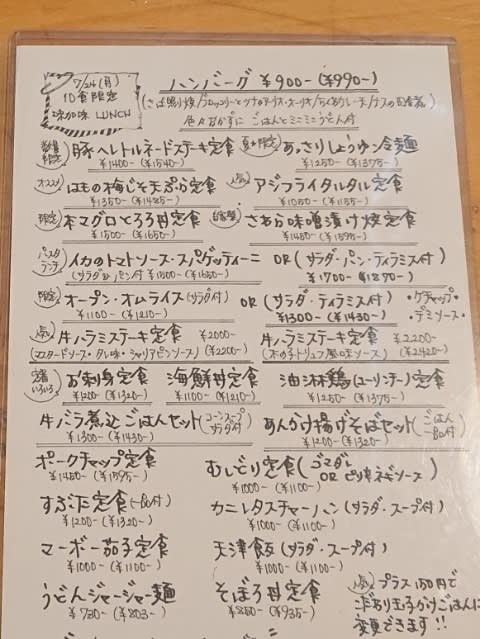 7/24(月)
10食限定
味加味 LUNCH
ハンバーグ ¥900-(¥990-)
(さば照り焼/ブロッコリーとツナのチリ
色々なおかずに ごはんとミニミニうどん付
数量限定 豚ヘレトルネードステーキ定食
¥1400-(¥1540-)
夏季限定 あっさりしょうゆ冷麺
¥1250-(¥1375-)
オススメ はもの梅じそ天ぷら定食
¥1350-(¥1485-)
人気 アジフライタルタル定食
¥1050-(¥1155-)
限定 本マグロとろろ丼定食
¥1500-(¥1650-)
自家製 さわら味噌漬け焼定食
¥1450-(¥1595-)
パスタランチ イカのトマトソース・スパゲッティーニ
(サラダ・パン付 ¥1500-(¥1650-)
OR (サラダ・パン・ティラミス付)
¥1700-(¥1870-)
限定 オープン・オムライス(サラダ付)
¥1100-(¥1210-)
OR (サラダ・ティラミス付)
¥1300-(¥1430-)
・ケチャップ・
・デミソース・
人気 牛ハラミステーキ定食 ¥2000-
(マスタードソース・タレ味・シャリアピンソース)(¥2200-)
牛ハラミステーキ定食 ¥2200-
(木の子トリュフ風味ソース)(¥2420-)
定番いろいろ お刺身定食
¥1200-(¥1320-)
海鮮丼定食
¥1100-(¥1210-)
油淋鶏(ユーリンチー)定食
¥1250-(¥1375-)
牛バラ煮込ごはんセット(コーンスープ サラダ付)
¥1300-(¥1430-)
あんかけ揚げそばセット(ごはん 一品付)
¥1200-(¥1320-)
ポークチャップ定食
¥1450-(¥1595-)
むしどり定食(ゴマダレ OR ピリ辛ネギソース)
¥1000-(¥1100-)
すぶた定食(一品付)
¥1200-(¥1320-)
カニレタスチャーハン(サラダ・スープ付)
¥1000-(¥1100-)
マーボー茄子定食
¥1000-(¥1100-)
天津飯(サラダ・スープ付)
¥1000-(¥1100-)
うどんジャージャー麺
¥730-(¥803-)
そぼろ丼定食
¥850-(¥935-)
人気 プラス150円で
玉子かけごはんに
変更できます!!